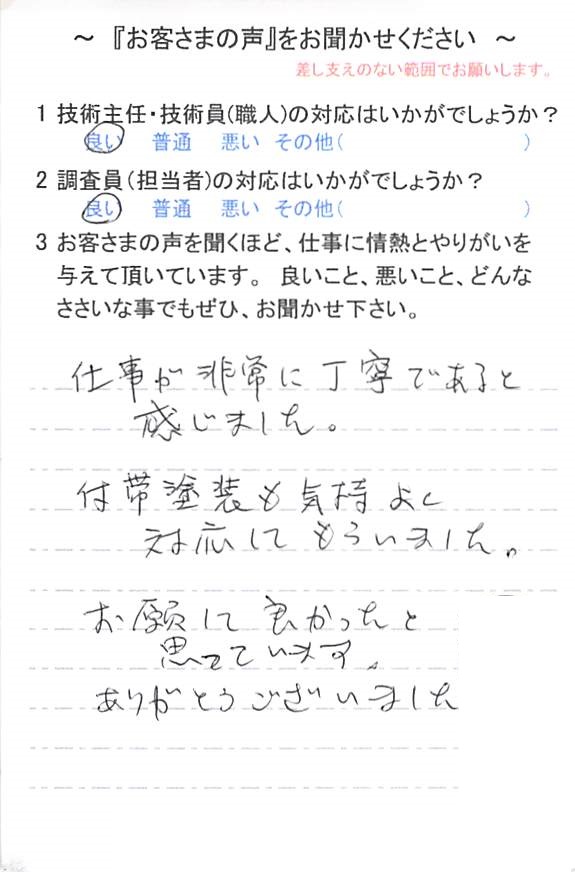 ～ 『お客さまの声』をお聞かせください ～
差し支えのない範囲でお願いします。
1 技術主任・技術員(職人)の対応はいかがでしょうか？
良い 普通 悪い その他( )
2 調査員(担当者)の対応はいかがでしょうか？
良い 普通 悪い その他( )
3 お客さまの声を聞くほど、仕事に情熱とやりがいを
与えて頂いています。 良いこと、悪いこと、どんな
ささいな事でもぜひ、お聞かせ下さい。
仕事が非常に丁寧であると
感じました。
付帯塗装も気持よく
対応してもらいました。
お願して良かったと
思ってています。
ありがとうございました